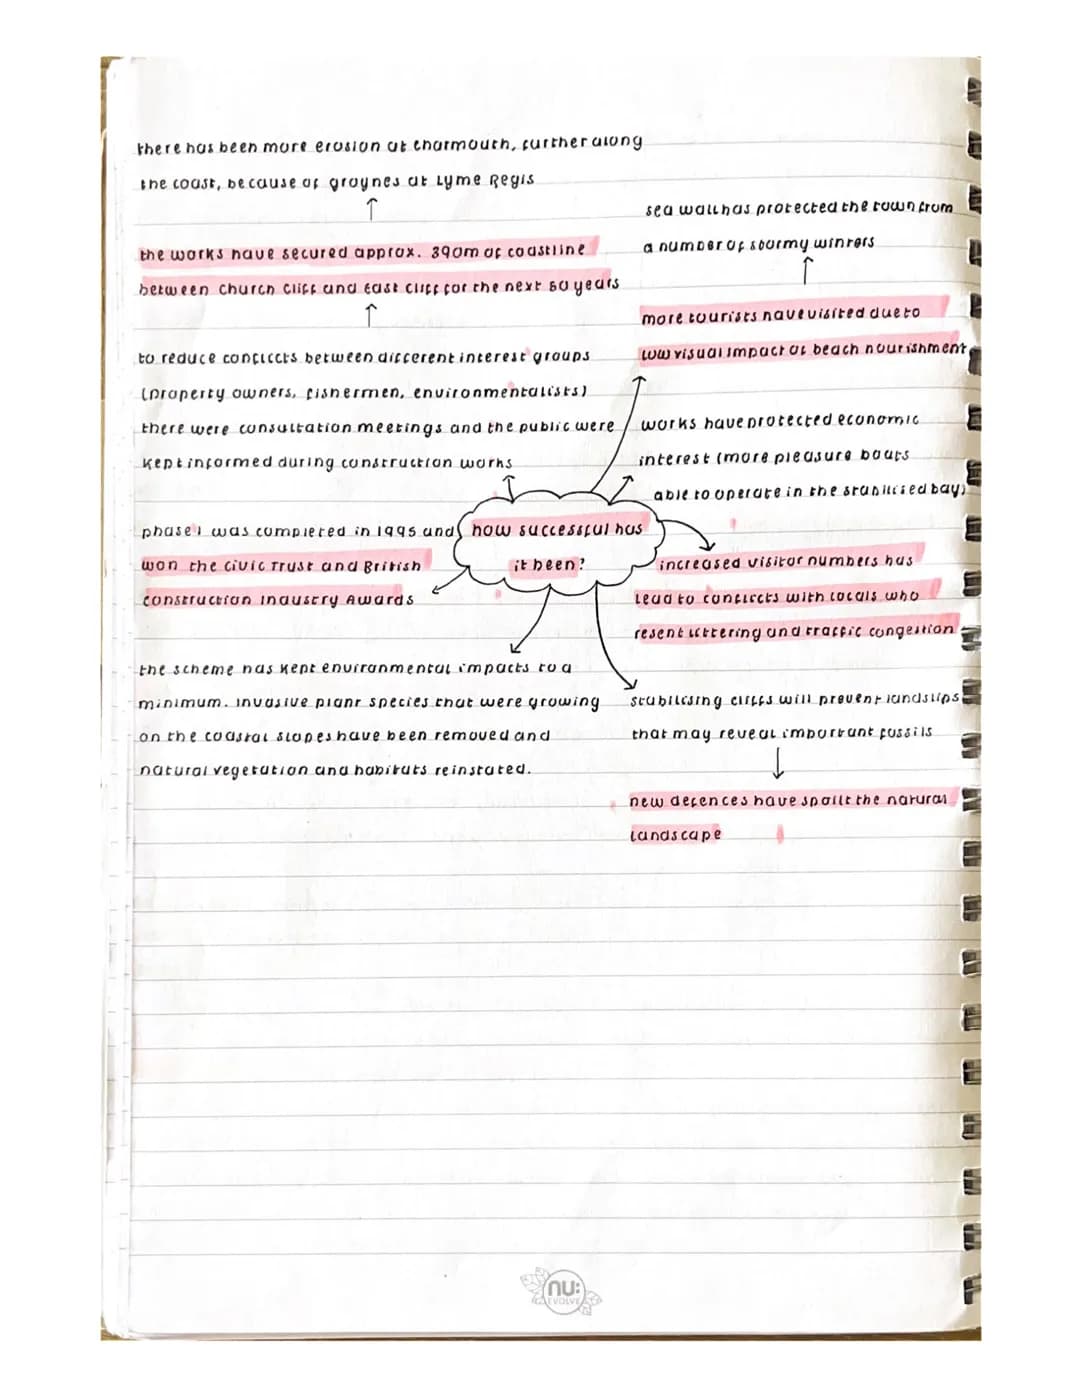 there has been more erosion at charmouth, further along
the coast, because of groynes at Lyme Regis
↑
the works have secured approx. 390m of coastline
between Church Cliff and East Cliff for the next 50 years
↑
to reduce conflicts between different interest groups
(property owners, fishermen, environmentalists)
there were consultation meetings and the public were
kept informed during construction works
phase 1 was completed in 1995 and
won the Civic Trust and British
Construction Industry Awards
the scheme has kept environmental impacts to a
minimum. invasive plant species that were growing
on the coastal slopes have been removed and
natural vegetation and habitats reinstated.
how successful has
it been?
sea wall has protected the town from
a number of stormy winters
↑
more tourists have visited due to
low visual impact of beach nourishment
works have protected economic
interest (more pleasure boats
able to operate in the stabilised bay)
increased visitor numbers has
lead to conflicts with locals who
resent littering and traffic congestion
stabilising cliffs will prevent landslips
that may reveal important fossils
↓
new defences have spoilt the natural
landscape
nu:
EVOLVE